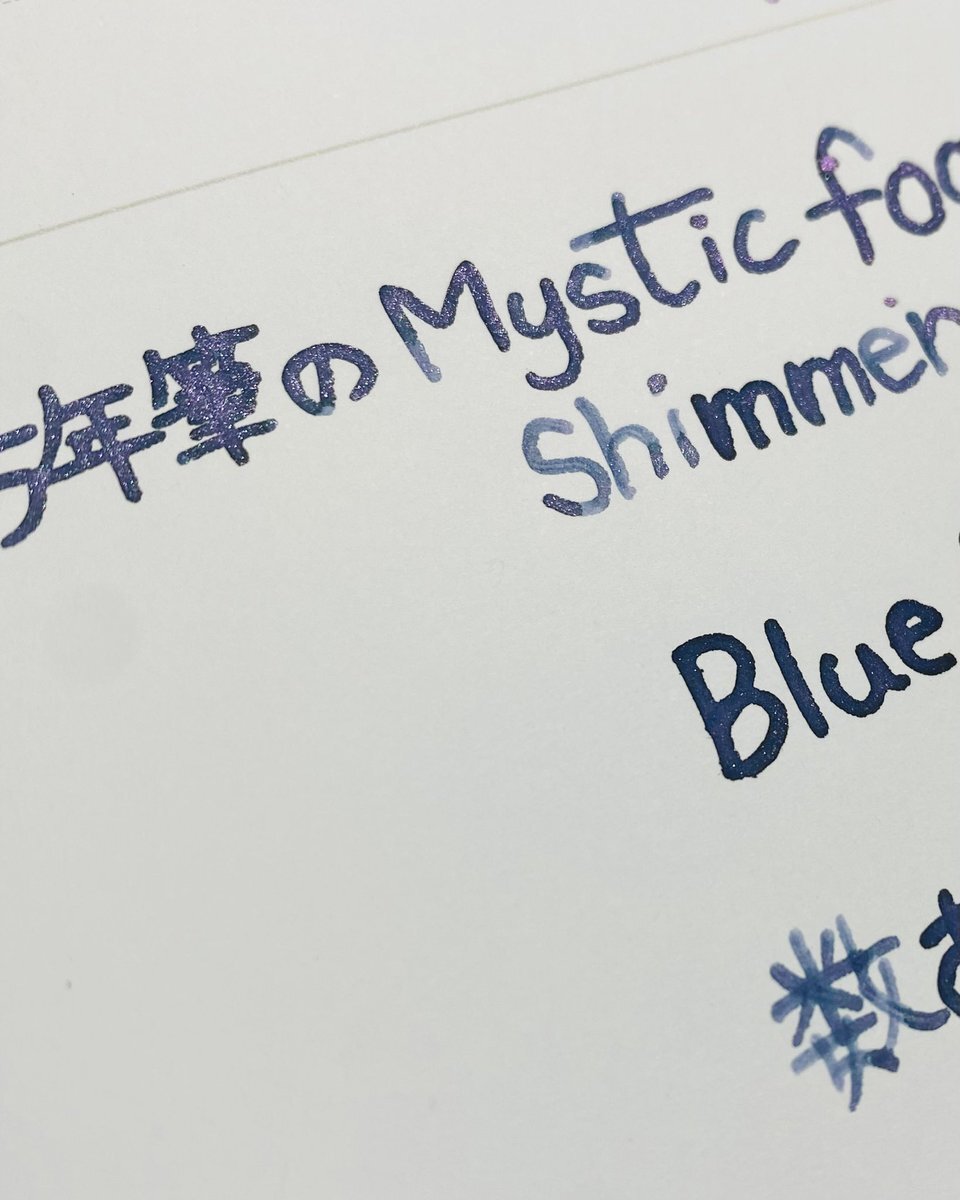 年筆の Mystic
Shimmer
Blue
数